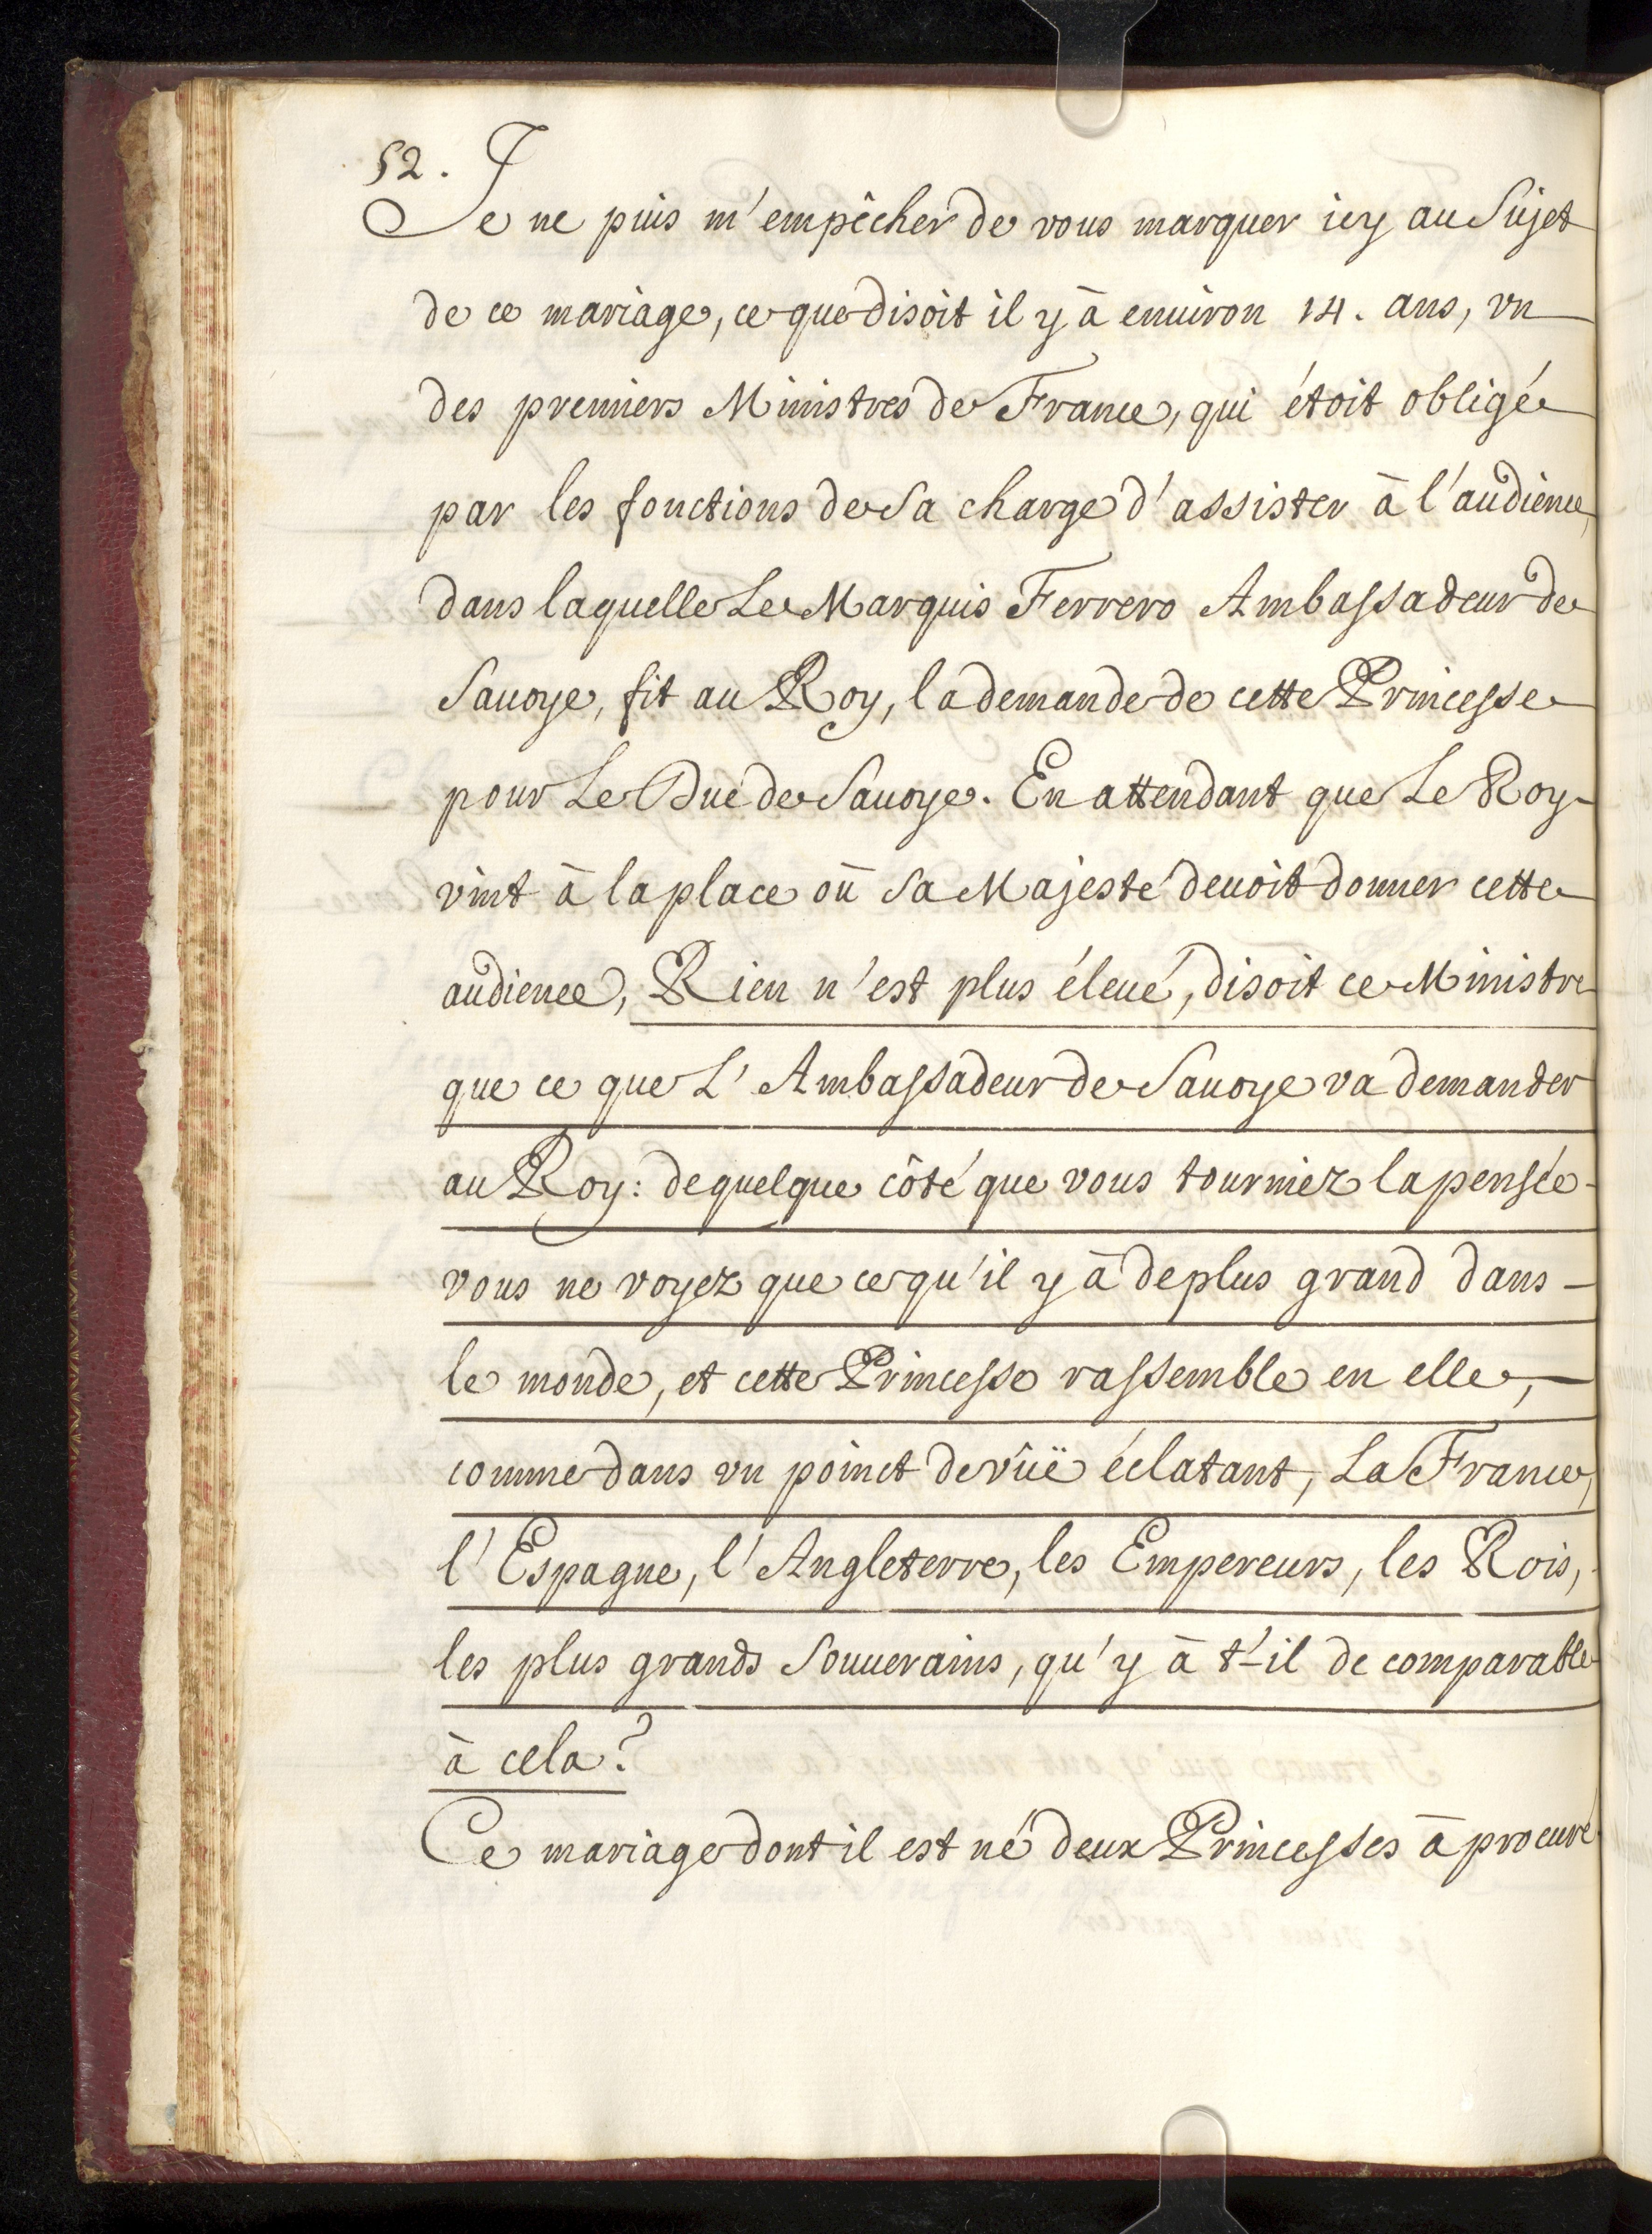 52.
Je ne puis m'empêcher de vous marquer icy au Sujet
de ce mariage, ce que disoit il y à enuiron 14. ans, vn
des premiers Ministres de France, qui étoit obligé
par les fonctions de Sa charge d'assister à l'audience,
dans laquelle Le Marquis Ferrero Ambassadeur de
Sauoye, fit au Roy, la demande de cette Princesse
pour Le Duc de Sauoye. En attendant que Le Roy
vint à la place où Sa Majesté deuoit donner cette
audience, Rien n'est plus éleué, disoit ce Ministre
que ce que L'Ambassadeur de Sauoye va demander
au Roy: de quelque côté que vous tourniez la pensée
vous ne voyez que ce qu'il y à de plus grand dans
le monde, et cette Princesse rassemble en elle,
comme dans vn poinct de vûë éclatant, La France,
l'Espagne, l'Angleterre, les Empereurs, les Rois,
les plus grands Souuerains, qu'y à t'-il de comparable
à cela?
Ce mariage dont il est né deux Princesses à procuré